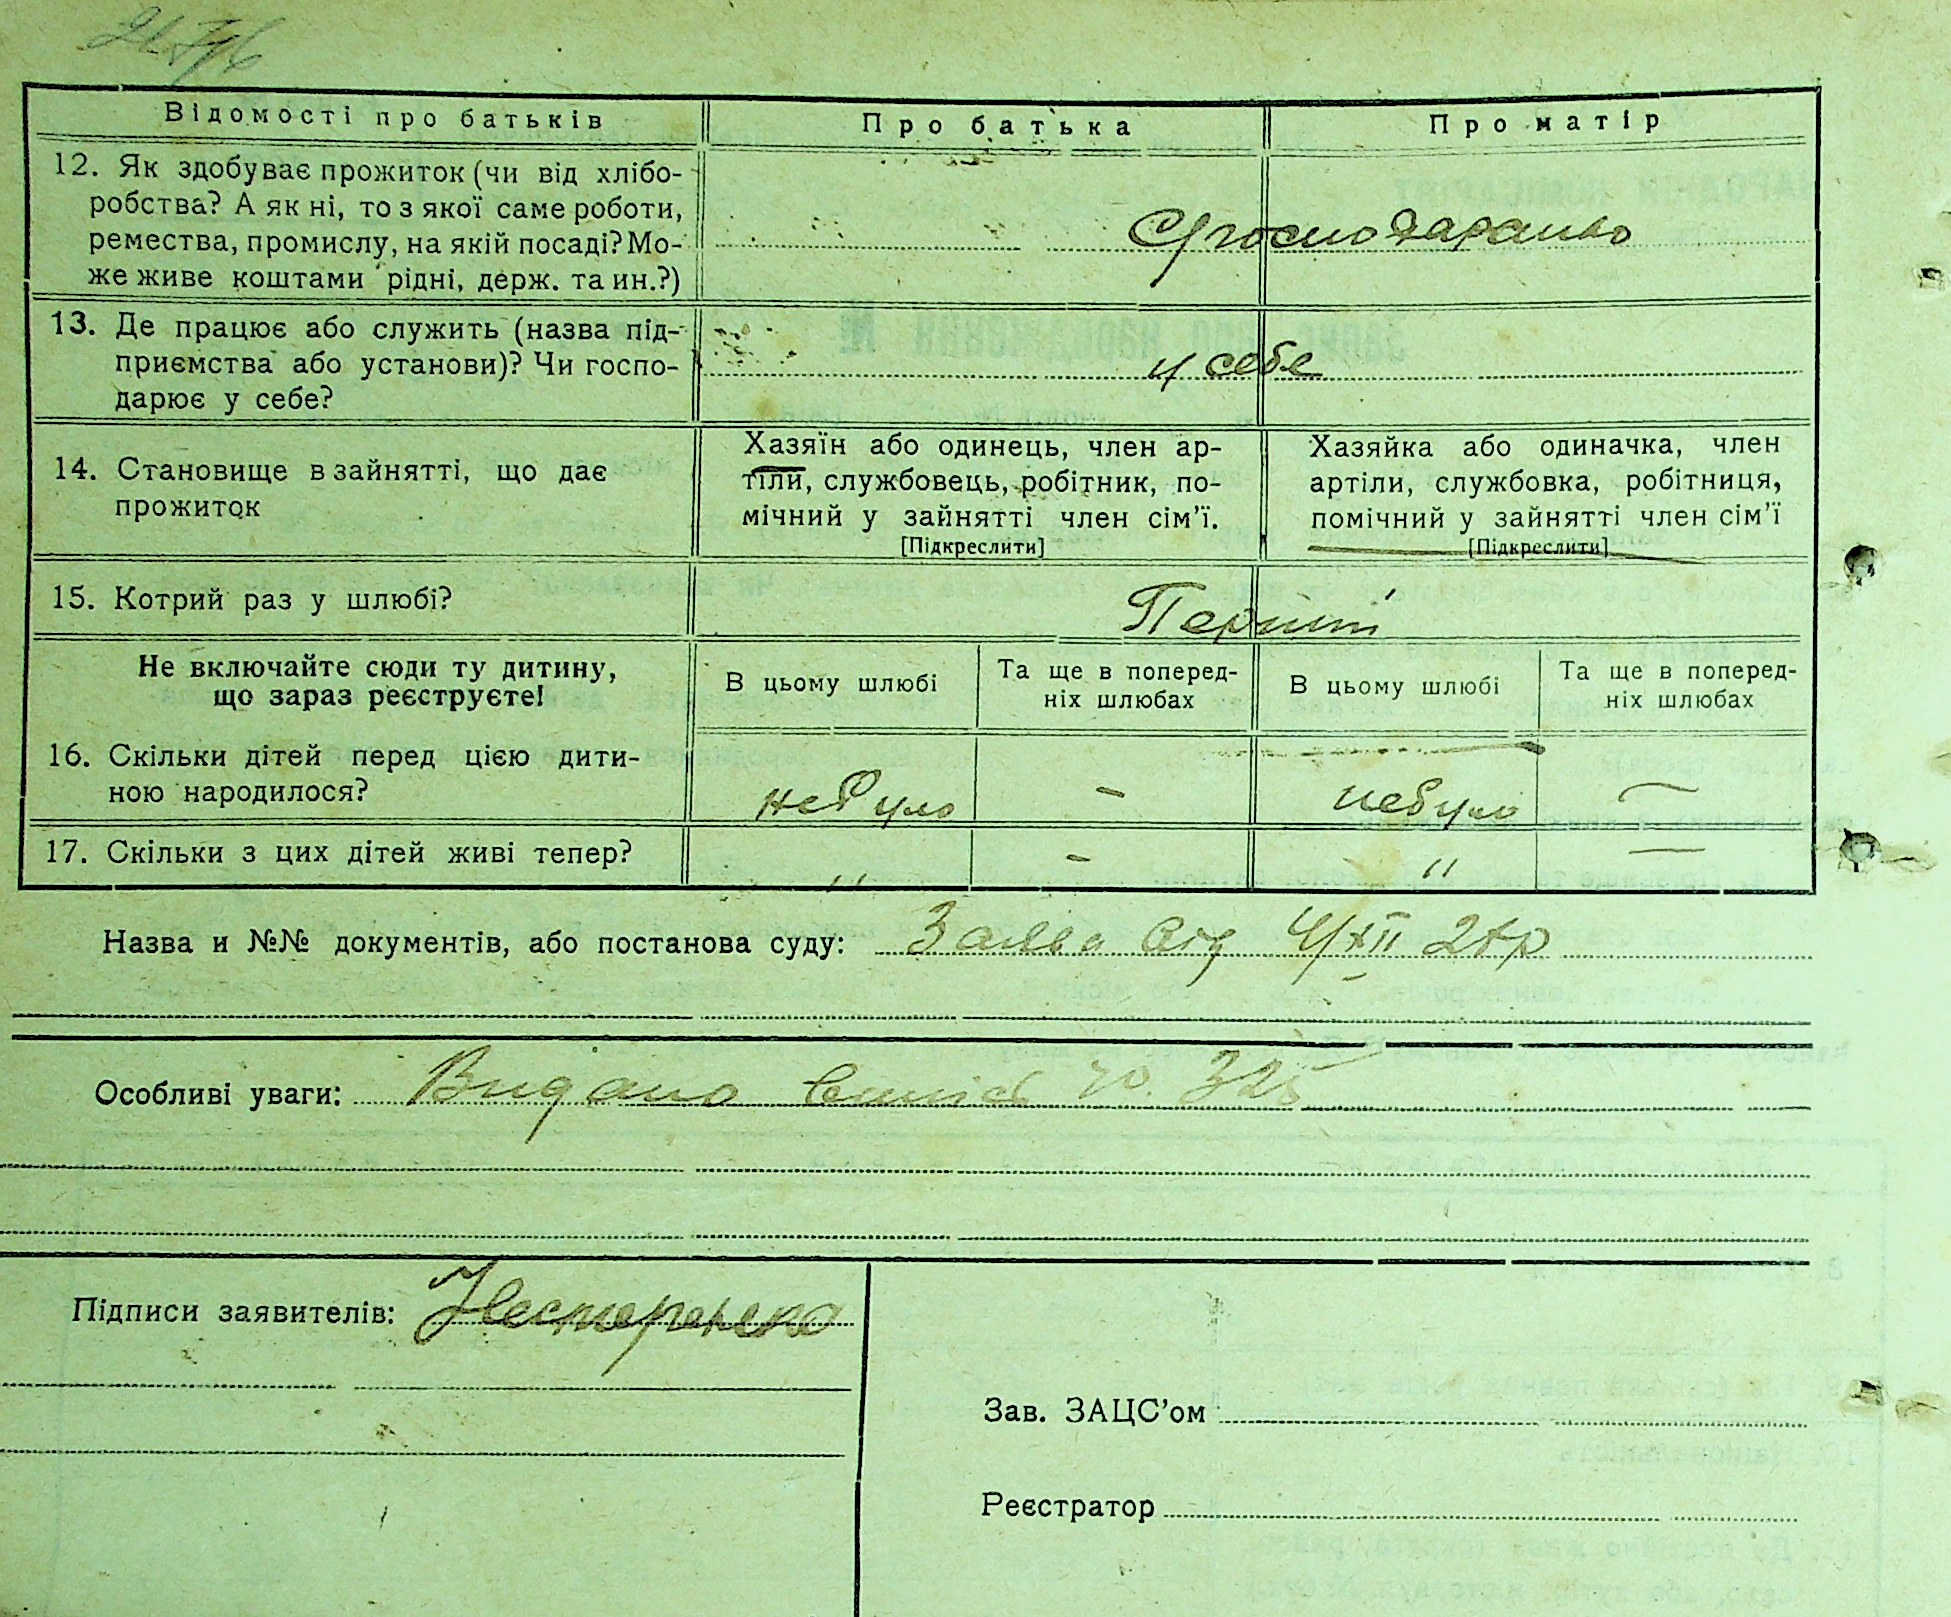 Відомості про батьків Про батька Про матір
12. Як здобуває прожиток (чи від хлібо-
робства? А як ні, то з якої саме роботи,
ремества, промислу, на якій посаді? Мо-
же живе коштами рідні, держ. та ин.?)
С/господарство
13. Де працює або служить (назва під-
приємства або установи)? Чи госпо-
дарює у себе?
у себе
14. Становище в зайнятті, що дає
прожиток
Хазяїн або одинець, член ар-
тіли, службовець, робітник, по-
мічний у зайнятті член сім'ї.
[Підкреслити]
Хазяйка або одиначка, член
артіли, службовка, робітниця,
помічний у зайнятті член сім'ї
[Підкреслити]
15. Котрий раз у шлюбі?
Перший
Не включайте сюди ту дитину,
що зараз реєструєте!
В цьому шлюбі
Та ще в поперед-
ніх шлюбах
В цьому шлюбі
Та ще в поперед-
ніх шлюбах
16. Скільки дітей перед цією дити-
ною народилося?
небуло - небуло —
17. Скільки з цих дітей живі тепер?
" - " —
Назва и №№ документів, або постанова суду: Заява від 4/XII
Особливі уваги: Видано №. 325
Підписи заявителів: Нестеренко
Зав. ЗАЦС'ом
Реєстратор